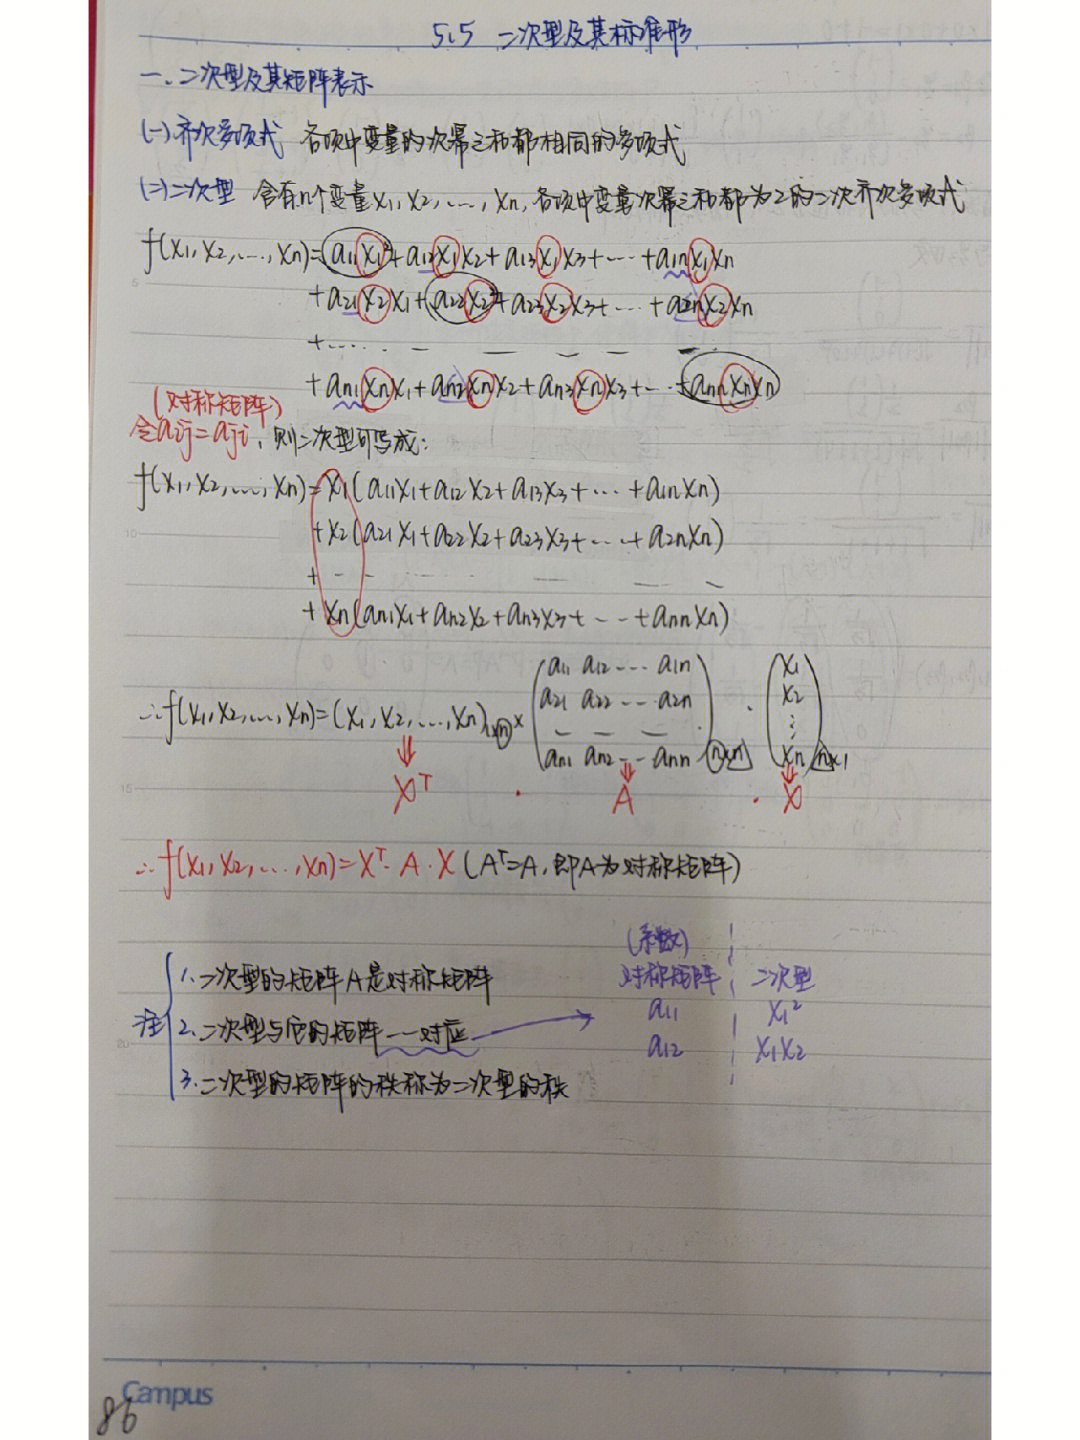 5.5 二次型及其标准形
一、二次型及其矩阵表示
(一)齐次多项式 各项中变量的次幂之和都相同的多项式
(二)二次型 含有n个变量x₁,x₂,…,xₙ,各项中变量次幂之和都为2的二次齐次多项式
f(x₁,x₂,…,xₙ)=a₁₁x₁²+a₁₂x₁x₂+a₁₃x₁x₃+…+a₁ₙx₁xₙ
+a₂₁x₂x₁+a₂₂x₂²+a₂₃x₂x₃+…+a₂ₙx₂xₙ
+……
+aₙ₁xₙx₁+aₙ₂xₙx₂+aₙ₃xₙx₃+…+aₙₙxₙxₙ
(对称矩阵)
令aᵢⱼ=aⱼᵢ,则二次型可写成:
f(x₁,x₂,…,xₙ)=x₁(a₁₁x₁+a₁₂x₂+a₁₃x₃+…+a₁ₙxₙ)
+x₂(a₂₁x₁+a₂₂x₂+a₂₃x₃+…+a₂ₙxₙ)
+……
+xₙ(aₙ₁x₁+aₙ₂x₂+aₙ₃x₃+…+aₙₙxₙ)
a₁₁ a₁₂ … a₁ₙ x₁
a₂₁ a₂₂ … a₂ₙ x₂
∴f(x₁,x₂,…,xₙ)=(x₁,x₂,…,xₙ)₁×ₙ× · ⋮
aₙ₁ aₙ₂ … aₙₙ n×n xₙ n×1
Xᵀ · A · X
∴f(x₁,x₂,…,xₙ)=Xᵀ·A·X(Aᵀ=A,即A为对称矩阵)
(系数)
注 1.二次型的矩阵A是对称矩阵 对称矩阵 二次型
a₁₁ x₁²
2.二次型与它的矩阵一一对应
a₁₂ x₁x₂
3.二次型的矩阵的秩称为二次型的秩
5
10
15
20
Campus
86